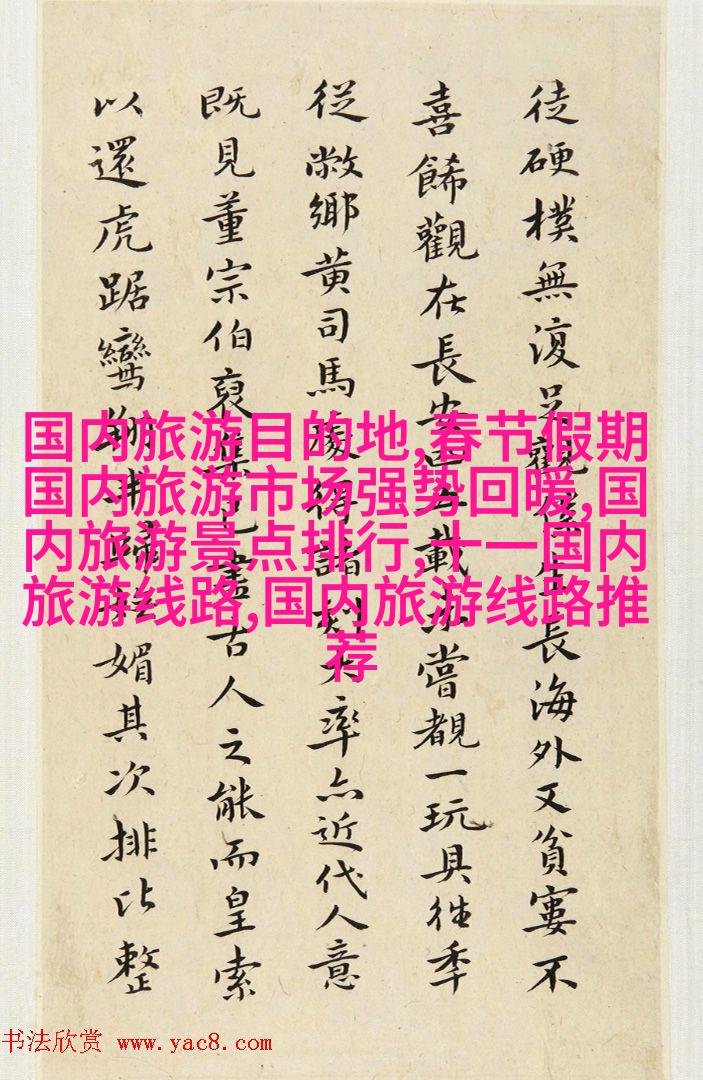 徒硬樸無復足觀僕生長海外又貧窶不
喜餙觀在長安載未嘗覩一玩具往季
從敝鄉黄司馬得諸刻大率亦近代人意
既見董宗伯裒集已盡古人之能而皇索
以還虎踞鸞翔媚其次排比整
国内旅游目的地,春节假期
国内旅游市场强势回暖,国
内旅游景点排行,十一国内
旅游线路,国内旅游线路推
荐
书法欣赏 www.yac8.com